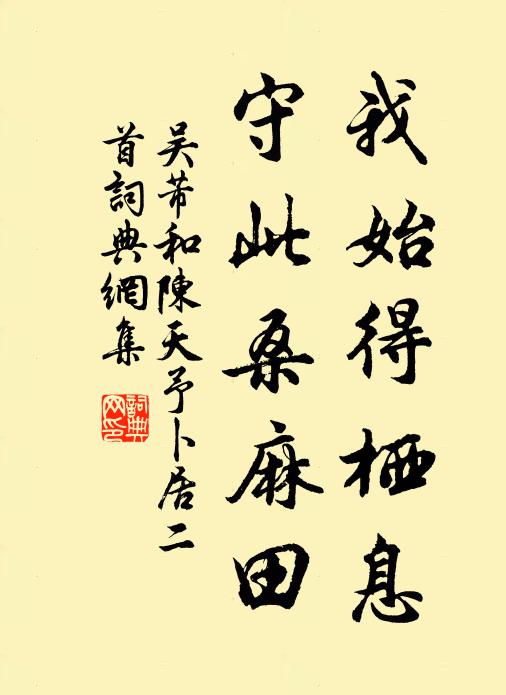 我始得栖息
守此桑麻田
吴芾和陳天予卜居二
首詞典網集
詞典
网印